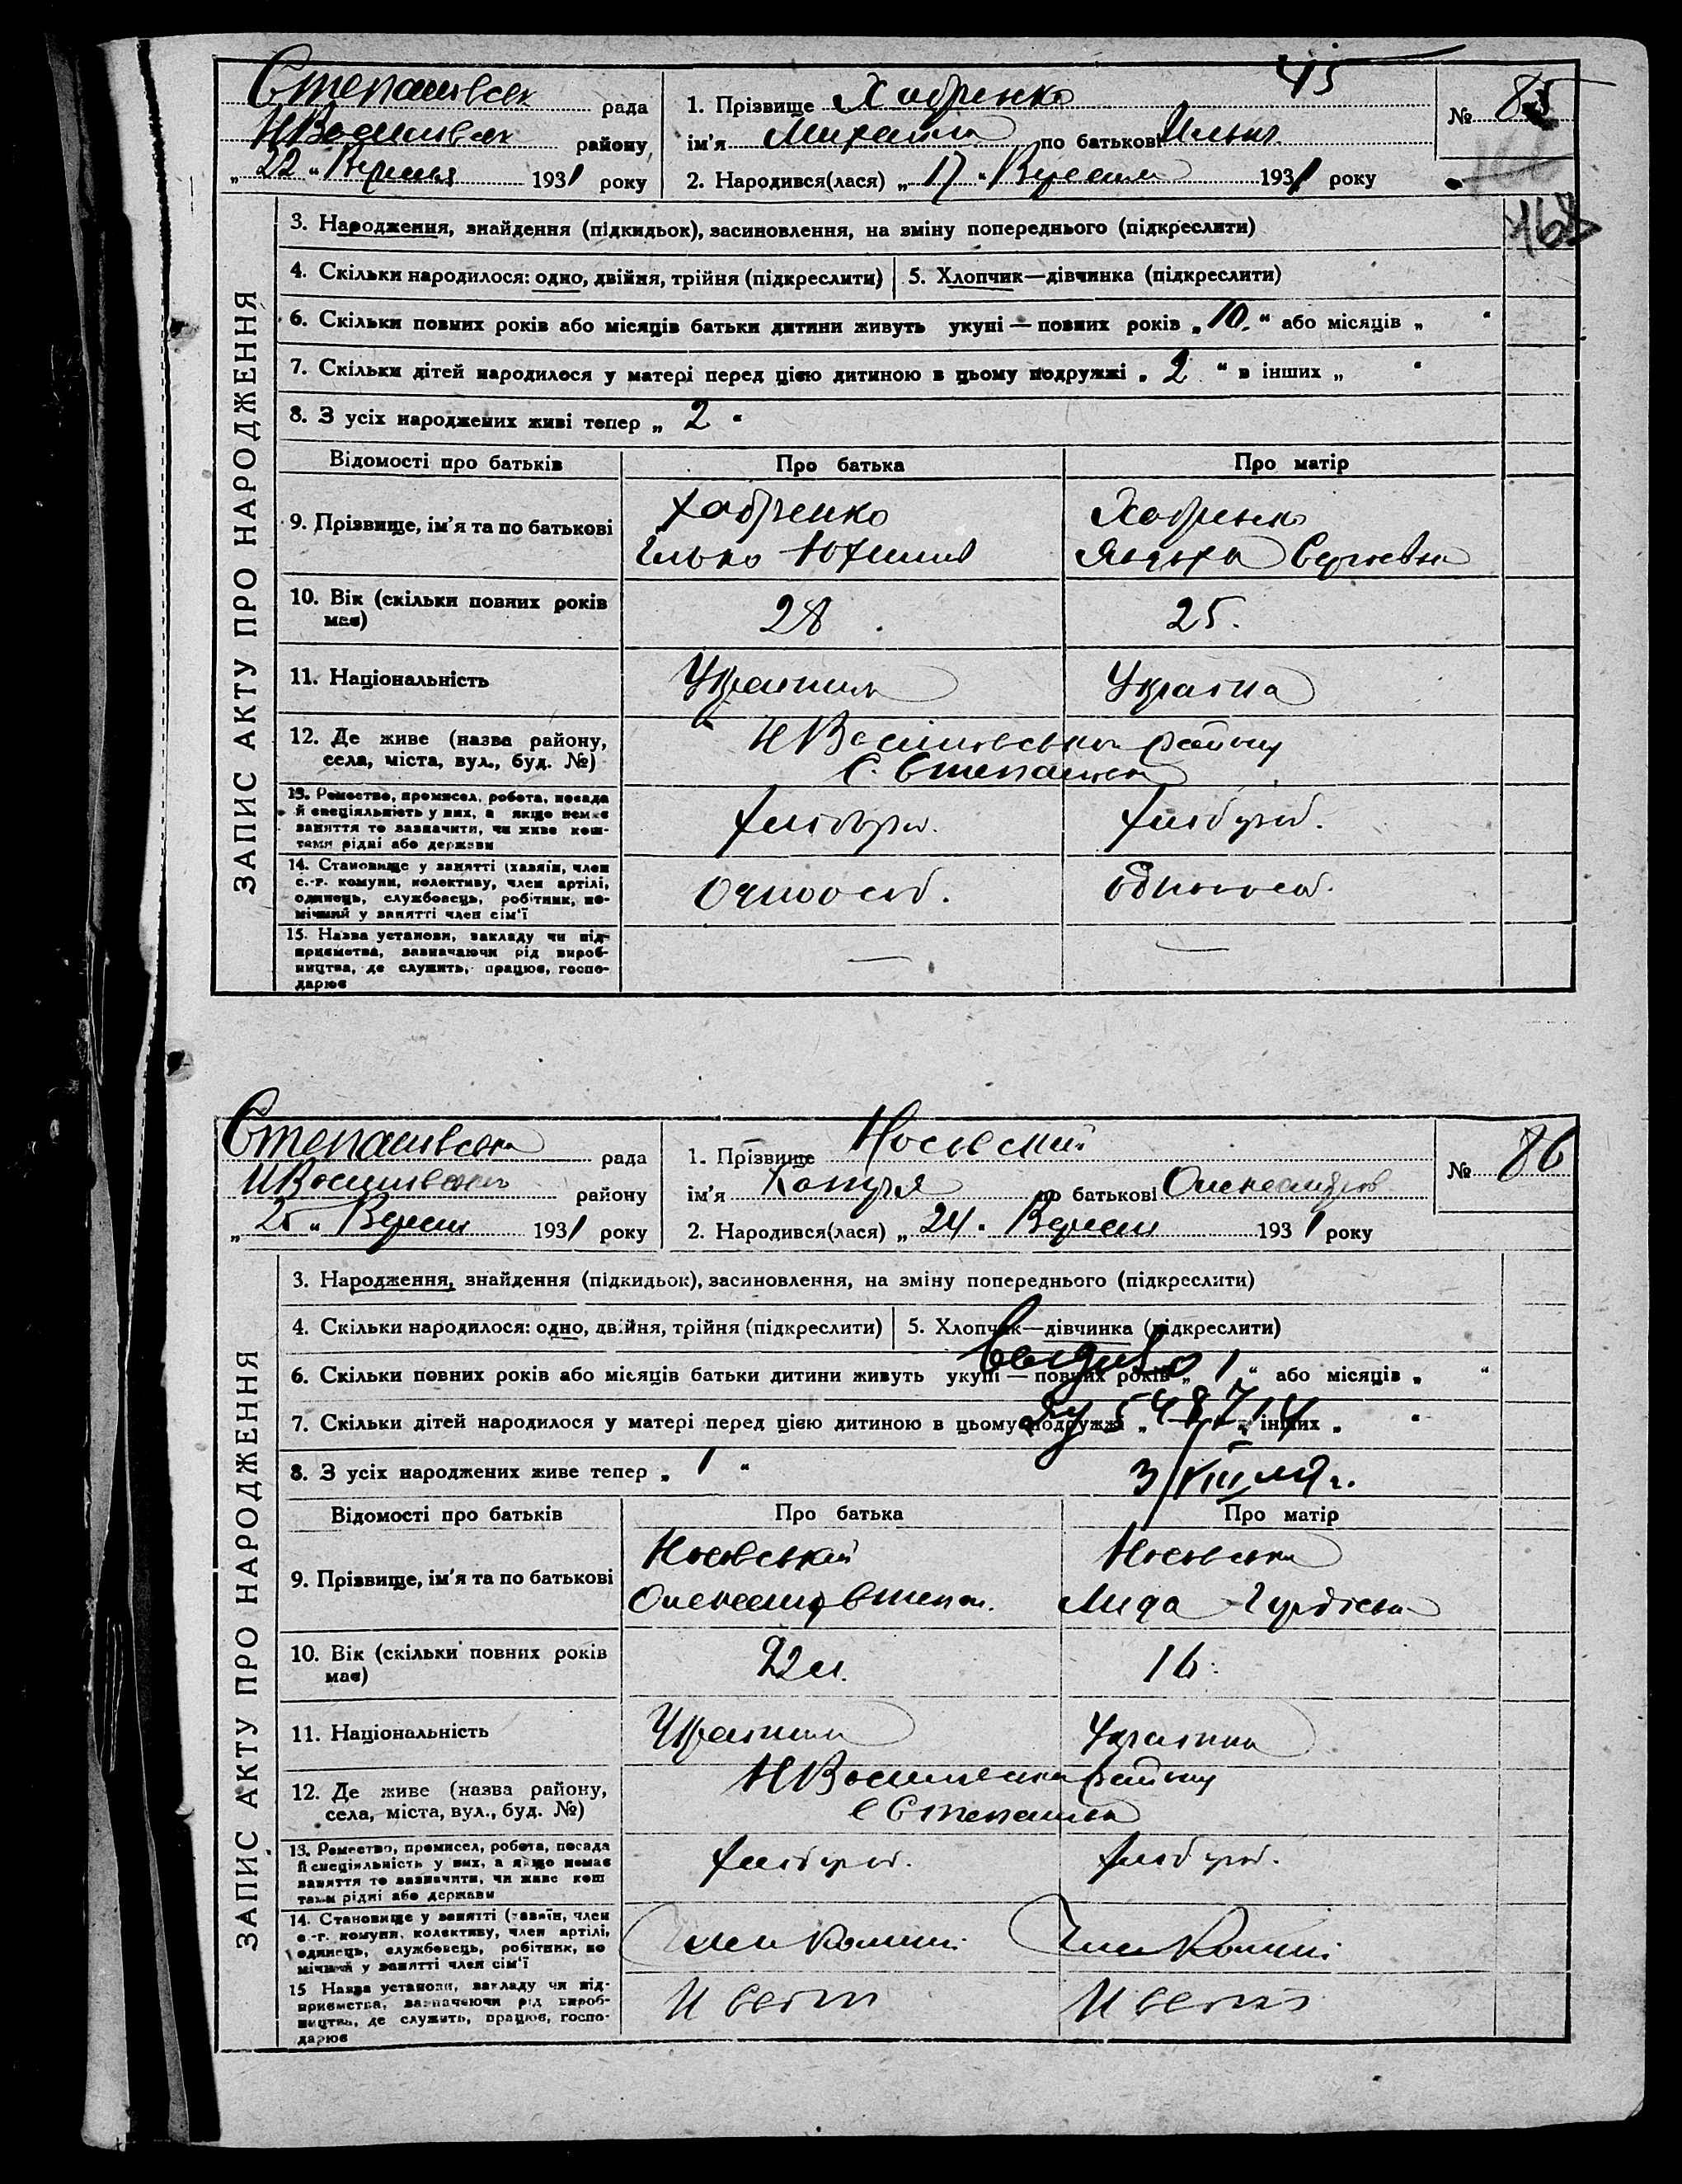 45
Степашівськ рада
1. Прізвище Хабренко
№ 85
НВасилівськ району
ім'я Михайло по батькові Ильич
„22“ Вересня 1931 року
2. Народився(лася) „17“ Вересня 1931 року
ЗАПИС АКТУ ПРО НАРОДЖЕННЯ
3. Народження, знайдення (підкидьок), засиновлення, на зміну попереднього (підкреслити)
4. Скільки народилося: одно, двійня, трійня (підкреслити)
5. Хлопчик—дівчинка (підкреслити)
6. Скільки повних років або місяців батьки дитини живуть укупі — повних років „10.“ або місяців „ “
7. Скільки дітей народилося у матері перед цією дитиною в цьому подружжі „2“ в інших „ “
8. З усіх народжених живі тепер „2“
Відомості про батьків
Про батька
Про матір
9. Прізвище, ім'я та по батькові
Хабренко
Ілько Юхимов
Хабренко
Сергієвна
10. Вік (скільки повних років має)
28
25.
11. Національність
Українець
Україна
12. Де живе (назва району, села, міста, вул., буд. №)
НВасилівського району
С. Степашки
13. Ремество, промисел, робота, посада
й спеціяльність у них, а якщо немає
заняття то зазначити, чи живе кош-
тами рідні або держави
хлібороб.
хлібороб.
14. Становище у занятті (хазяїн, член
с.-г. комуни, колективу, член артілі,
одинець, службовець, робітник, по-
мічний у занятті член сім'ї
Одноосіб.
Одноосіб.
15. Назва установи, закладу чи під-
приємства, зазначаючи рід вироб-
ництва, де служить, працює, госпо-
дарює
—
—
Степашівська рада
1. Прізвище Носовский
№ 86
НВасилівськ району
ім'я по батькові Олександров
„25“ Вересня 1931 року
2. Народився(лася) „24“ Вересня 1931 року
ЗАПИС АКТУ ПРО НАРОДЖЕННЯ
3. Народження, знайдення (підкидьок), засиновлення, на зміну попереднього (підкреслити)
4. Скільки народилося: одно, двійня, трійня (підкреслити)
5. Хлопчик—дівчинка (підкреслити)
6. Скільки повних років або місяців батьки дитини живуть укупі — повних років „1“ або місяців „ “
7. Скільки дітей народилося у матері перед цією дитиною в цьому подружжі „ “ в інших „ “
8. З усіх народжених живе тепер „1“
Відомості про батьків
Про батька
Про матір
9. Прізвище, ім'я та по батькові
Носовський
Олександ Степан.
Носовська
Лида
10. Вік (скільки повних років має)
22
16.
11. Національність
Українець
Українка
12. Де живе (назва району, села, міста, вул., буд. №)
НВасилівська району
с Степашки
13. Ремество, промисел, робота, посада
й спеціяльність у них, а якщо немає
заняття то зазначити, чи живе кош
тами рідні або держави
хлібороб.
хлібороб.
14. Становище у занятті (хазяїн, член
с.-г. комуни, колективу, член артілі,
одинець, службовець, робітник, по
мічний у занятті член сім'ї
Член Комуни
Член Комуни
15 Назва установи, закладу чи під-
приємства, зазначаючи рід вироб-
ництва, де служить, працює, госпо-
дарює